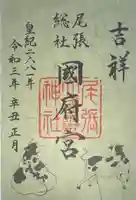 吉祥
尾張
総社
國府宮
皇紀二六八一年
令和三年 辛丑 正月
尾張
神社